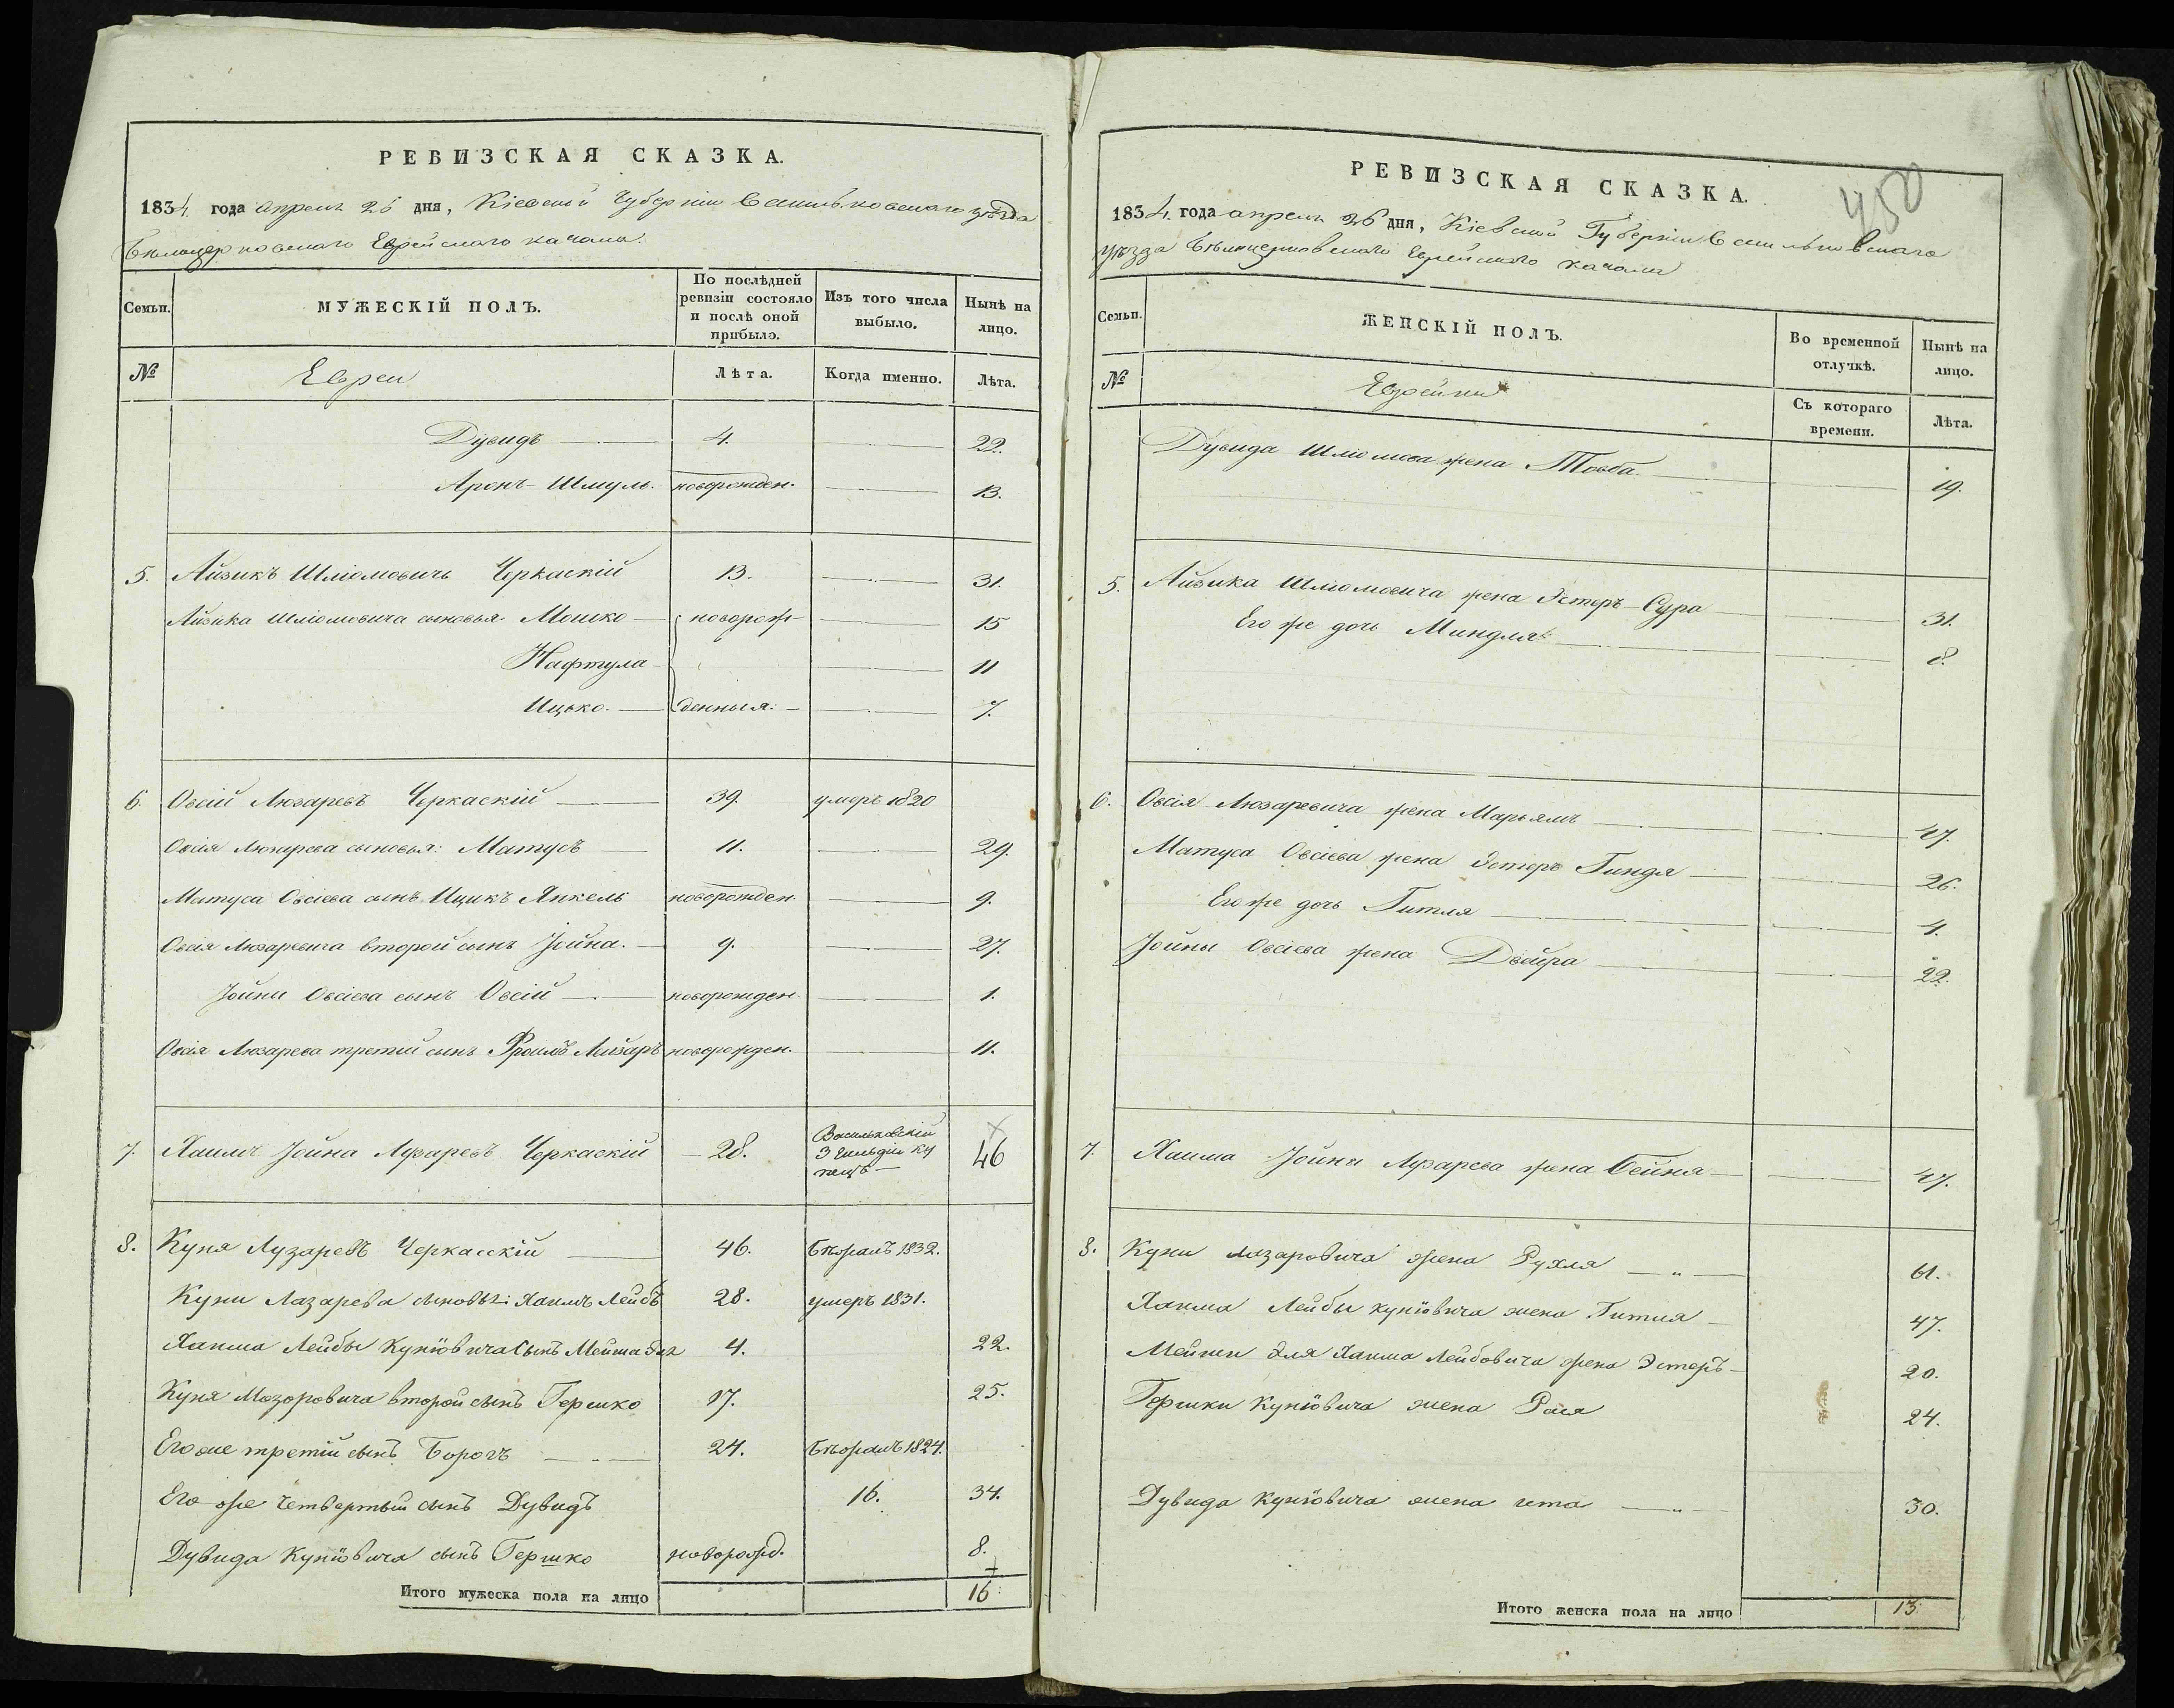 РЕВИЗСКАЯ СКАЗКА.
1834. года апреля 26 дня, Кіевской Губерніи Васильковскаго уѣзда
Бѣлоцерковскаго Еврейскаго кагала.
Семьи.
МУЖЕСКІЙ ПОЛЪ.
По послѣдней ревизіи состояло и послѣ оной прибыло.
Изъ того числа выбыло.
Нынѣ на лицо.
№
Евреи
Лѣта.
Когда именно.
Лѣта.
Дувидъ 4. 22.
Аронъ-Шмуль. новорожден. 13.
5. Айзикъ Шліомовичь Черкаскій 13. 31.
Айзика Шліомовича сыновья: Мошко новорож- 15
Нафтула 11
Ицько. денныя. 7.
6. Овсій Люзаревъ Черкаскій 39. умеръ 1820
Овсія Люзарева сыновья: Матусъ 11. 29.
Матуса Овсіева сынъ Ицикъ Янкель новорожден. 9.
Овсія Люзаревича второй сынъ Іойна. 9. 27.
Іойни Овсіева сынъ Овсій новорожден. 1.
Овсія Люзарева третій сынъ Фроимъ Лизаръ новорожден. 11.
7. Хаимъ Іойна Лузаревъ Черкаскій 28. Васильковскій 3 гильдіи ку пецъ 46
8. Куня Лузаревъ Черкасскій 46. Бѣжалъ 1832.
Куни Лазарева сыновья: Хаимъ Лейбъ 28. умеръ 1831.
Хаима Лейбы Куніовича сынъ Мейша Эля 4. 22.
Куня Лазоровича второй сынъ Гершко 17. 25.
Его же третій сынъ Борохъ 24. Бѣжалъ 1824.
Его же четвертый сынъ Дувидъ 16. 34.
Дувида Куніовича сынъ Гершко новорожд. 8.
Итого мужеска пола на лицо 16
450
РЕВИЗСКАЯ СКАЗКА.
1834. года апреля 26 дня, Кіевской Губерніи Васильковскаго
уѣзда Бѣлоцерковскаго Еврейскаго кагала
Семьи.
ЖЕНСКІЙ ПОЛЪ.
Во временной отлучкѣ.
Нынѣ на лицо.
№
Еврейки
Съ котораго времени.
Лѣта.
Дувида Шліомова жена Товба 19.
5. Айзика Шліомовича жена Эстеръ-Сура 31.
Его же дочь Миндля 8.
6. Овсія Люзаревича жена Марьямъ 47.
Матуса Овсіева жена Эстеръ Гиндя 26.
Его же дочь Гитля 4.
Іойны Овсіева жена Двойра 22.
7. Хаима Іойны Лузарева жена Бейна 47.
8. Куни Лазаровича жена Рухля 61.
Хаима Лейбы Куніовича жена Гитля 47.
Мейши Эля Хаима Лейбовича жена Эстеръ 20.
Гершки Куніовича жена Рася 24.
Дувида Куніовича жена Ита 30.
Итого женска пола на лицо 13